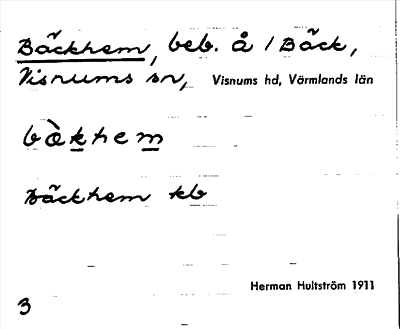 Bäckhem, beb. å 1 Bäck,
Visnums sn, Visnums hd, Värmlands län
bàkhem
Bäckhem kb
Herman Hultström 1911
3